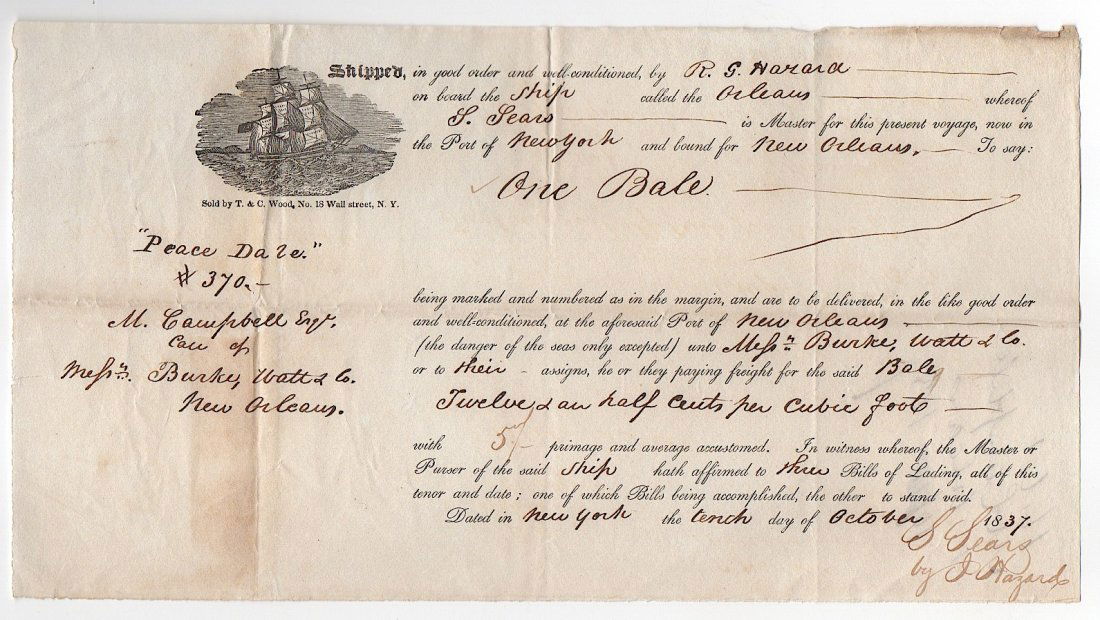 Shipped, in good order and well-conditioned, by R. G. Hazard
on board the Ship called the Orleans whereof
S. Sears is Master for this present voyage, now in
the Port of New York and bound for New Orleans. To say:
One Bale.
Sold by T. & C. Wood, No. 18 Wall street, N. Y.
"Peace Dale."
# 370.-
M. Campbell Esqr.
Care of
Messrs. Burke, Watt & Co.
New Orleans.
being marked and numbered as in the margin, and are to be delivered, in the like good order
and well-conditioned, at the aforesaid Port of New Orleans
(the danger of the seas only excepted) unto Messrs Burke, Watt & Co.
or to their - assigns, he or they paying freight for the said Bale
Twelve & an half cents per cubic foot
with 5 primage and average accustomed. In witness whereof, the Master or
Purser of the said Ship hath affirmed to three Bills of Lading, all of this
tenor and date; one of which Bills being accomplished, the other to stand void.
Dated in New York the tenth day of October 1837.
S Sears
by J Hazard